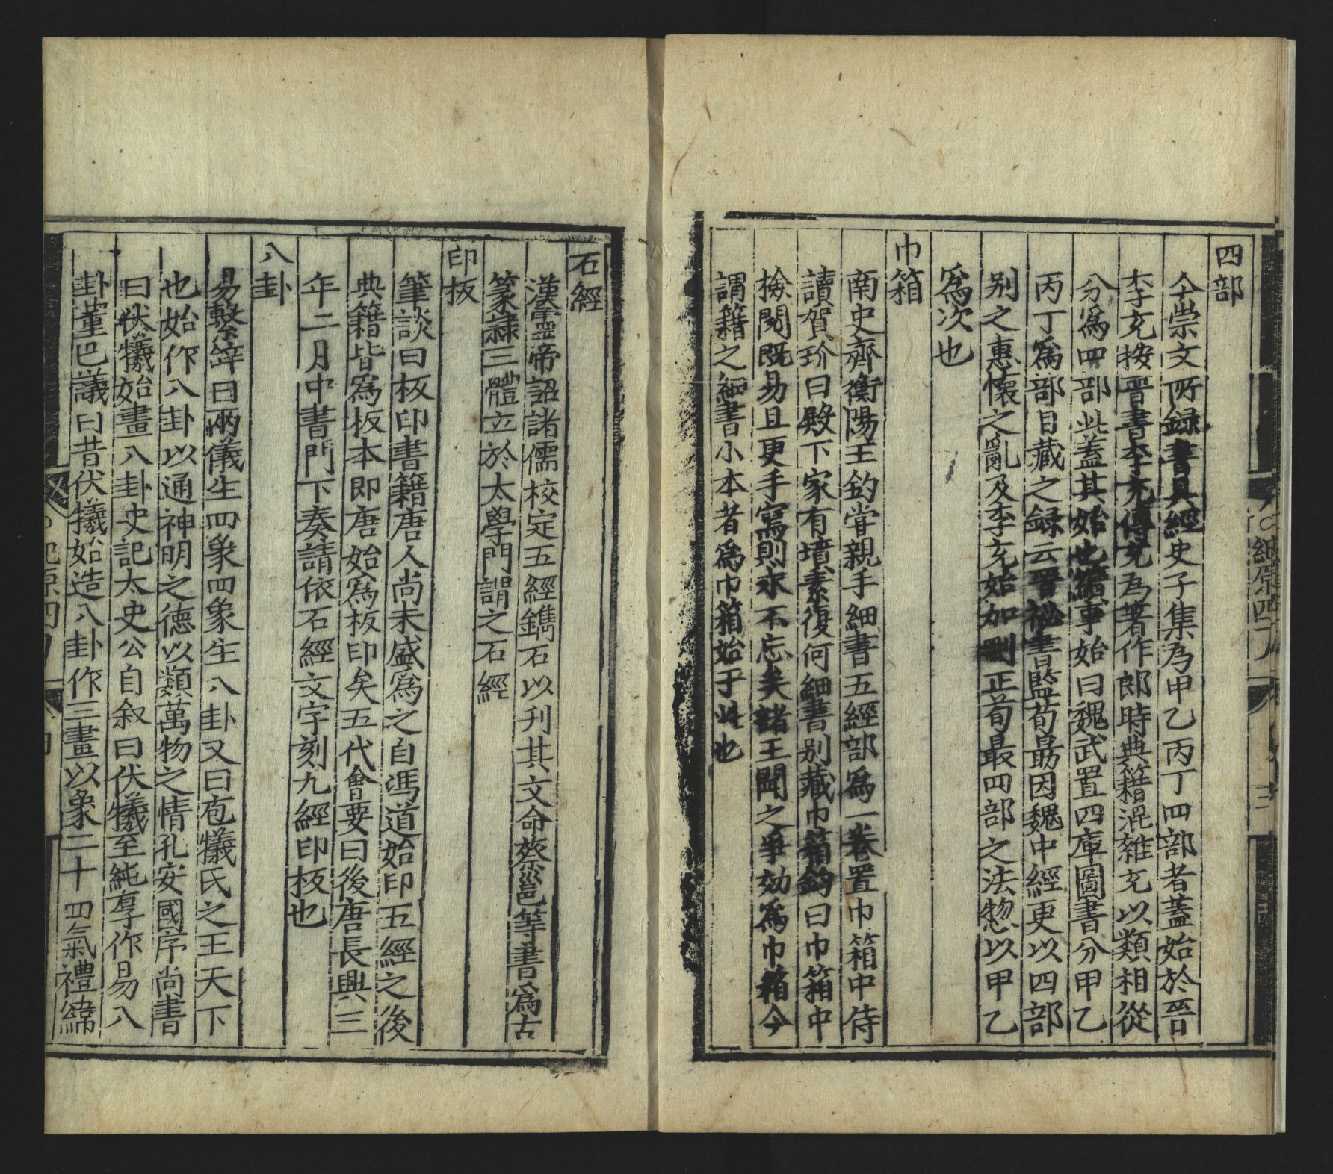 四部
仐崇文所録書具經史子集為甲乙丙丁四部者蓋始於晉
李充按晉書李充傳充為著作郎時典籍混雜充以類相從
分爲四部此蓋其始也續事始曰魏武置四庫圖書分甲乙
丙丁爲部目藏之録云晋秘書監荀勗因魏中經更以四部
别之惠懷之亂及李充始加刪正荀最四部之法惣以甲乙
爲次也
巾箱
南史齊衡陽王鈞甞親手細書五經部爲一卷置巾箱中侍
讀賀玠曰殿下家有墳素復何細書别藏巾箱鈞曰巾箱中
檢閱既易且更手寫則永不忘矣諸王聞之爭効爲巾箱今
謂籍之細書小本者爲巾箱始于此也
石經
漢靈帝詔諸儒校定五經鐫石以刋其文命蔡邕等書爲古
篆隸三體立於太學門謂之石經
印板
筆談曰板印書籍唐人尚未盛爲之自馮道始印五經之後
典籍皆爲板本即唐始爲板印矣五代會要曰後唐長興三
年二月中書門下奏請依石經文字刻九經印板也
八卦
易繫辤曰兩儀生四象四象生八卦又曰庖犧氏之王天下
也始作八卦以通神明之德以類萬物之情孔安國序尚書
曰伏犧始畫八卦史記太史公自叙曰伏犧至純厚作易八
卦董巴議曰昔伏犧始造八卦作三畫以象二十四氣禮緯